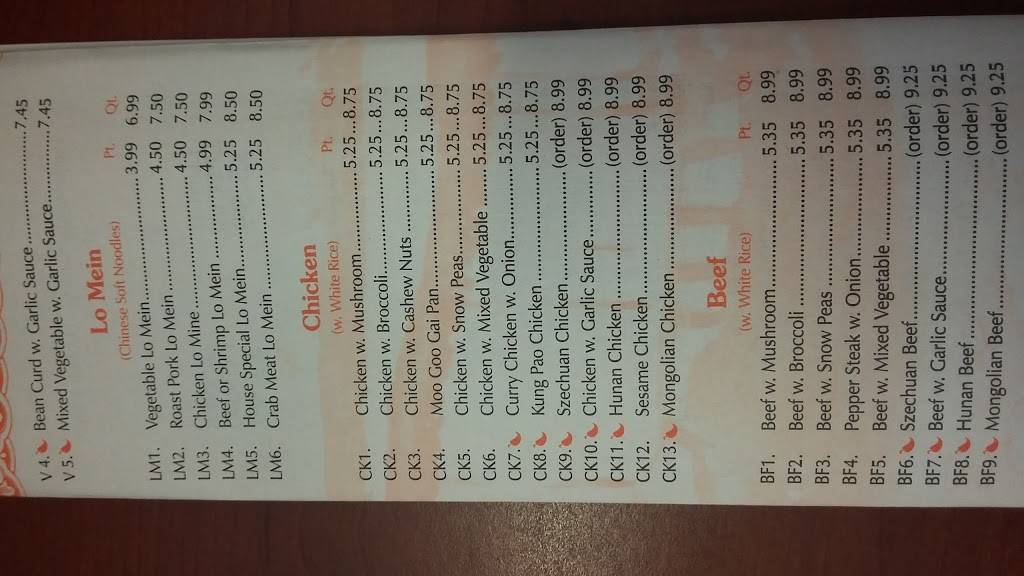 V 4. Bean Curd w. Garlic Sauce.....................7.45
V 5. Mixed Vegetable w. Garlic Sauce..............7.45
Lo Mein
(Chinese Soft Noodles)
Pt. Qt.
LM1. Vegetable Lo Mein........................ 3.99 6.99
LM2. Roast Pork Lo Mein ........................ 4.50 7.50
LM3. Chicken Lo Mine........................ 4.50 7.50
LM4. Beef or Shrimp Lo Mein ................ 4.99 7.99
LM5. House Special Lo Mein................... 5.25 8.50
LM6. Crab Meat Lo Mein ........................ 5.25 8.50
Chicken
(w. White Rice)
Pt. Qt.
CK1. Chicken w. Mushroom.................. 5.25...8.75
CK2. Chicken w. Broccoli...................... 5.25...8.75
CK3. Chicken w. Cashew Nuts ............. 5.25...8.75
CK4. Moo Goo Gai Pan....................... 5.25...8.75
CK5. Chicken w. Snow Peas................. 5.25...8.75
CK6. Chicken w. Mixed Vegetable ........ 5.25...8.75
CK7. Curry Chicken w. Onion.............. 5.25...8.75
CK8. Kung Pao Chicken...................... 5.25...8.75
CK9. Szechuan Chicken.......................(order) 8.99
CK10. Chicken w. Garlic Sauce..............(order) 8.99
CK11. Hunan Chicken ..........................(order) 8.99
CK12. Sesame Chicken..........................(order) 8.99
CK13. Mongolian Chicken......................(order) 8.99
Beef
(w. White Rice)
Pt. Qt.
BF1. Beef w. Mushroom........................ 5.35 8.99
BF2. Beef w. Broccoli .......................... 5.35 8.99
BF3. Beef w. Snow Peas ...................... 5.35 8.99
BF4. Pepper Steak w. Onion................. 5.35 8.99
BF5. Beef w. Mixed Vegetable .............. 5.35 8.99
BF6. Szechuan Beef..........................(order) 9.25
BF7. Beef w. Garlic Sauce...................(order) 9.25
BF8. Hunan Beef..............................(order) 9.25
BF9. Mongolian Beef.........................(order) 9.25